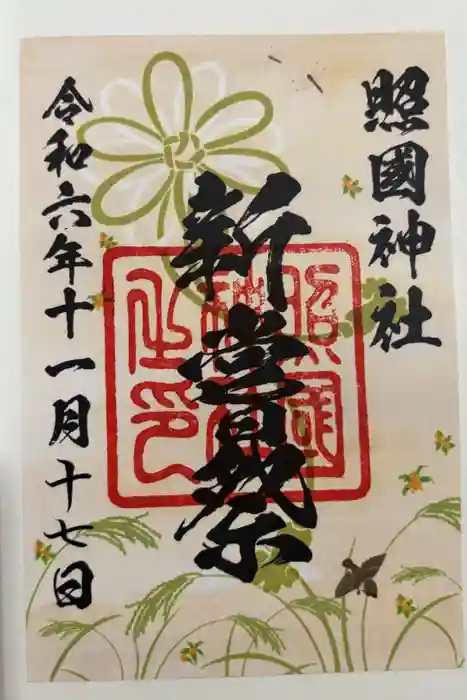 照國神社
新嘗祭
令和六年十一月十七日